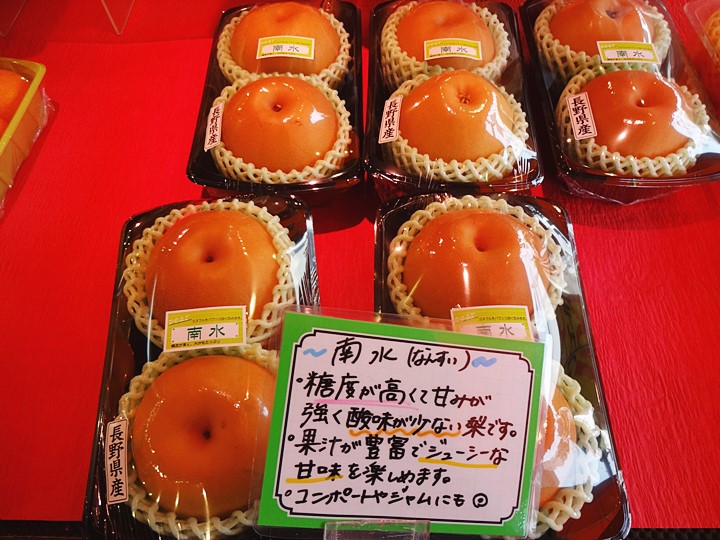 南水
南水
南水
長野県産
長野県産
長野県産
南水
南水
長野県産
南水(なんすい)
・糖度が高くて甘みが
強く酸味が少ない梨です。
・果汁が豊富でジューシーな
甘味を楽しめます。
・コンポートやジャムにも◎